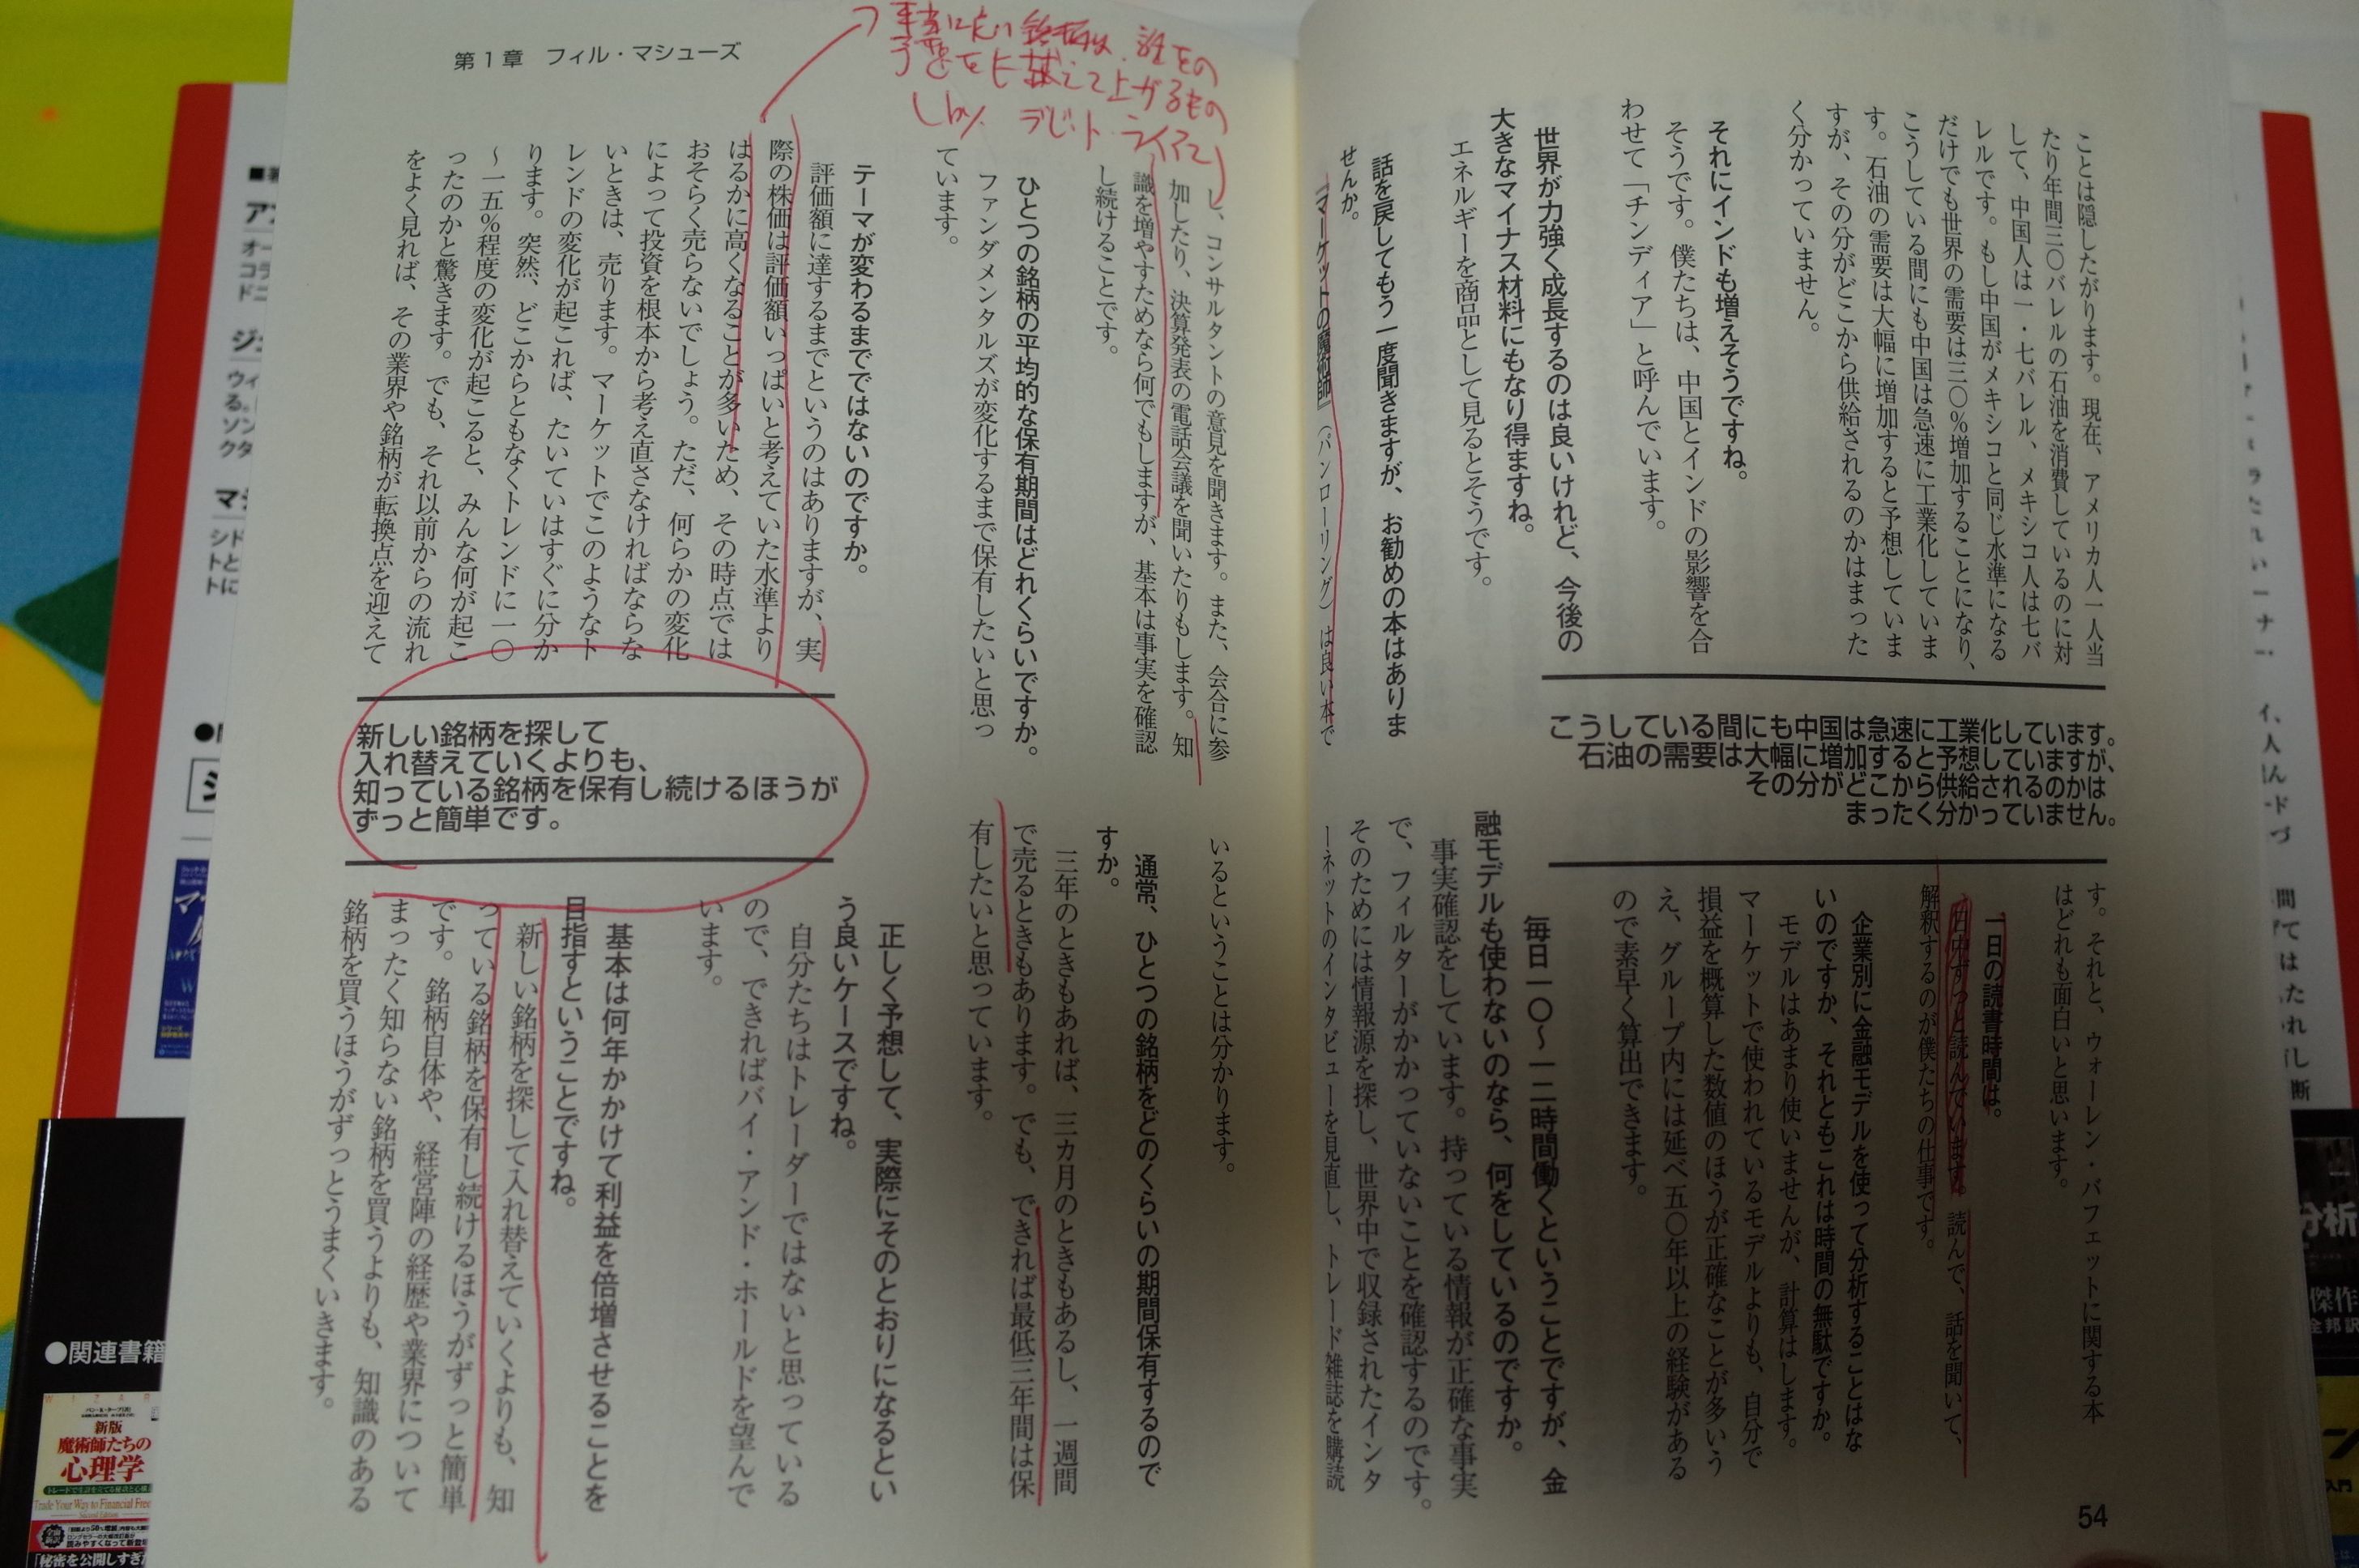 ことは隠したがります。現在、アメリカ人一人当
たり年間三〇バレルの石油を消費しているのに対
して、中国人は一・七バレル、メキシコ人は七バ
レルです。もし中国がメキシコと同じ水準になる
だけでも世界の需要は三〇％増加することになり、
こうしている間にも中国は急速に工業化していま
す。石油の需要は大幅に増加すると予想していま
すが、その分がどこから供給されるのかはまった
く分かっていません。
それにインドも増えそうですね。
そうです。僕たちは、中国とインドの影響を合
わせて「チンディア」と呼んでいます。
世界が力強く成長するのは良いけれど、今後の
大きなマイナス材料にもなり得ますね。
エネルギーを商品として見るとそうです。
話を戻してもう一度聞きますが、お勧めの本はありま
せんか。
『マーケットの魔術師』（パンローリング）は良い本で
こうしている間にも中国は急速に工業化しています。
石油の需要は大幅に増加すると予想していますが、
その分がどこから供給されるのかは
まったく分かっていません。
す。それと、ウォーレン・バフェットに関する本
はどれも面白いと思います。
一日の読書時間は。
日中ずっと読んでいます。読んで、話を聞いて、
解釈するのが僕たちの仕事です。
企業別に金融モデルを使って分析することはな
いのですか、それともこれは時間の無駄ですか。
モデルはあまり使いませんが、計算はします。
マーケットで使われているモデルよりも、自分で
損益を概算した数値のほうが正確なことが多いう
え、グループ内には延べ五〇年以上の経験がある
ので素早く算出できます。
毎日一〇～一二時間働くということですが、金
融モデルも使わないのなら、何をしているのですか。
事実確認をしています。持っている情報が正確な事実
で、フィルターがかかっていないことを確認するのです。
そのためには情報源を探し、世界中で収録されたインタ
ーネットのインタビューを見直し、トレード雑誌を購読
54
第1章 フィル・マシューズ
本当に良い銘柄は、誰もの
予想をも越えて上がるもの
by デビット・ライアン
し、コンサルタントの意見を聞きます。また、会合に参
加したり、決算発表の電話会議を聞いたりもします。知
識を増やすためなら何でもしますが、基本は事実を確認
し続けることです。
ひとつの銘柄の平均的な保有期間はどれくらいですか。
ファンダメンタルズが変化するまで保有したいと思っ
ています。
テーマが変わるまでではないのですか。
評価額に達するまでというのはありますが、実
際の株価は評価額いっぱいと考えていた水準より
はるかに高くなることが多いため、その時点では
おそらく売らないでしょう。ただ、何らかの変化
によって投資を根本から考え直さなければならな
いときは、売ります。マーケットでこのようなト
レンドの変化が起これば、たいていはすぐに分か
ります。突然、どこからともなくトレンドに一〇
～一五％程度の変化が起こると、みんな何が起こ
ったのかと驚きます。でも、それ以前からの流れ
をよく見れば、その業界や銘柄が転換点を迎えて
新しい銘柄を探して
入れ替えていくよりも、
知っている銘柄を保有し続けるほうが
ずっと簡単です。
いるということは分かります。
通常、ひとつの銘柄をどのくらいの期間保有するので
すか。
三年のときもあれば、三カ月のときもあるし、一週間
で売るときもあります。でも、できれば最低三年間は保
有したいと思っています。
正しく予想して、実際にそのとおりになるとい
う良いケースですね。
自分たちはトレーダーではないと思っている
ので、できればバイ・アンド・ホールドを望んで
います。
基本は何年かかけて利益を倍増させることを
目指すということですね。
新しい銘柄を探して入れ替えていくよりも、知
っている銘柄を保有し続けるほうがずっと簡単
です。銘柄自体や、経営陣の経歴や業界について
まったく知らない銘柄を買うよりも、知識のある
銘柄を買うほうがずっとうまくいきます。
●関連書籍
新版
魔術師たちの
心理学
Trade Your Way to Financial Free